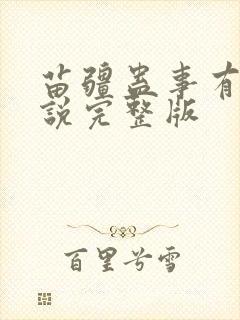 苗疆蛊事有
說完整版
百里兮雪